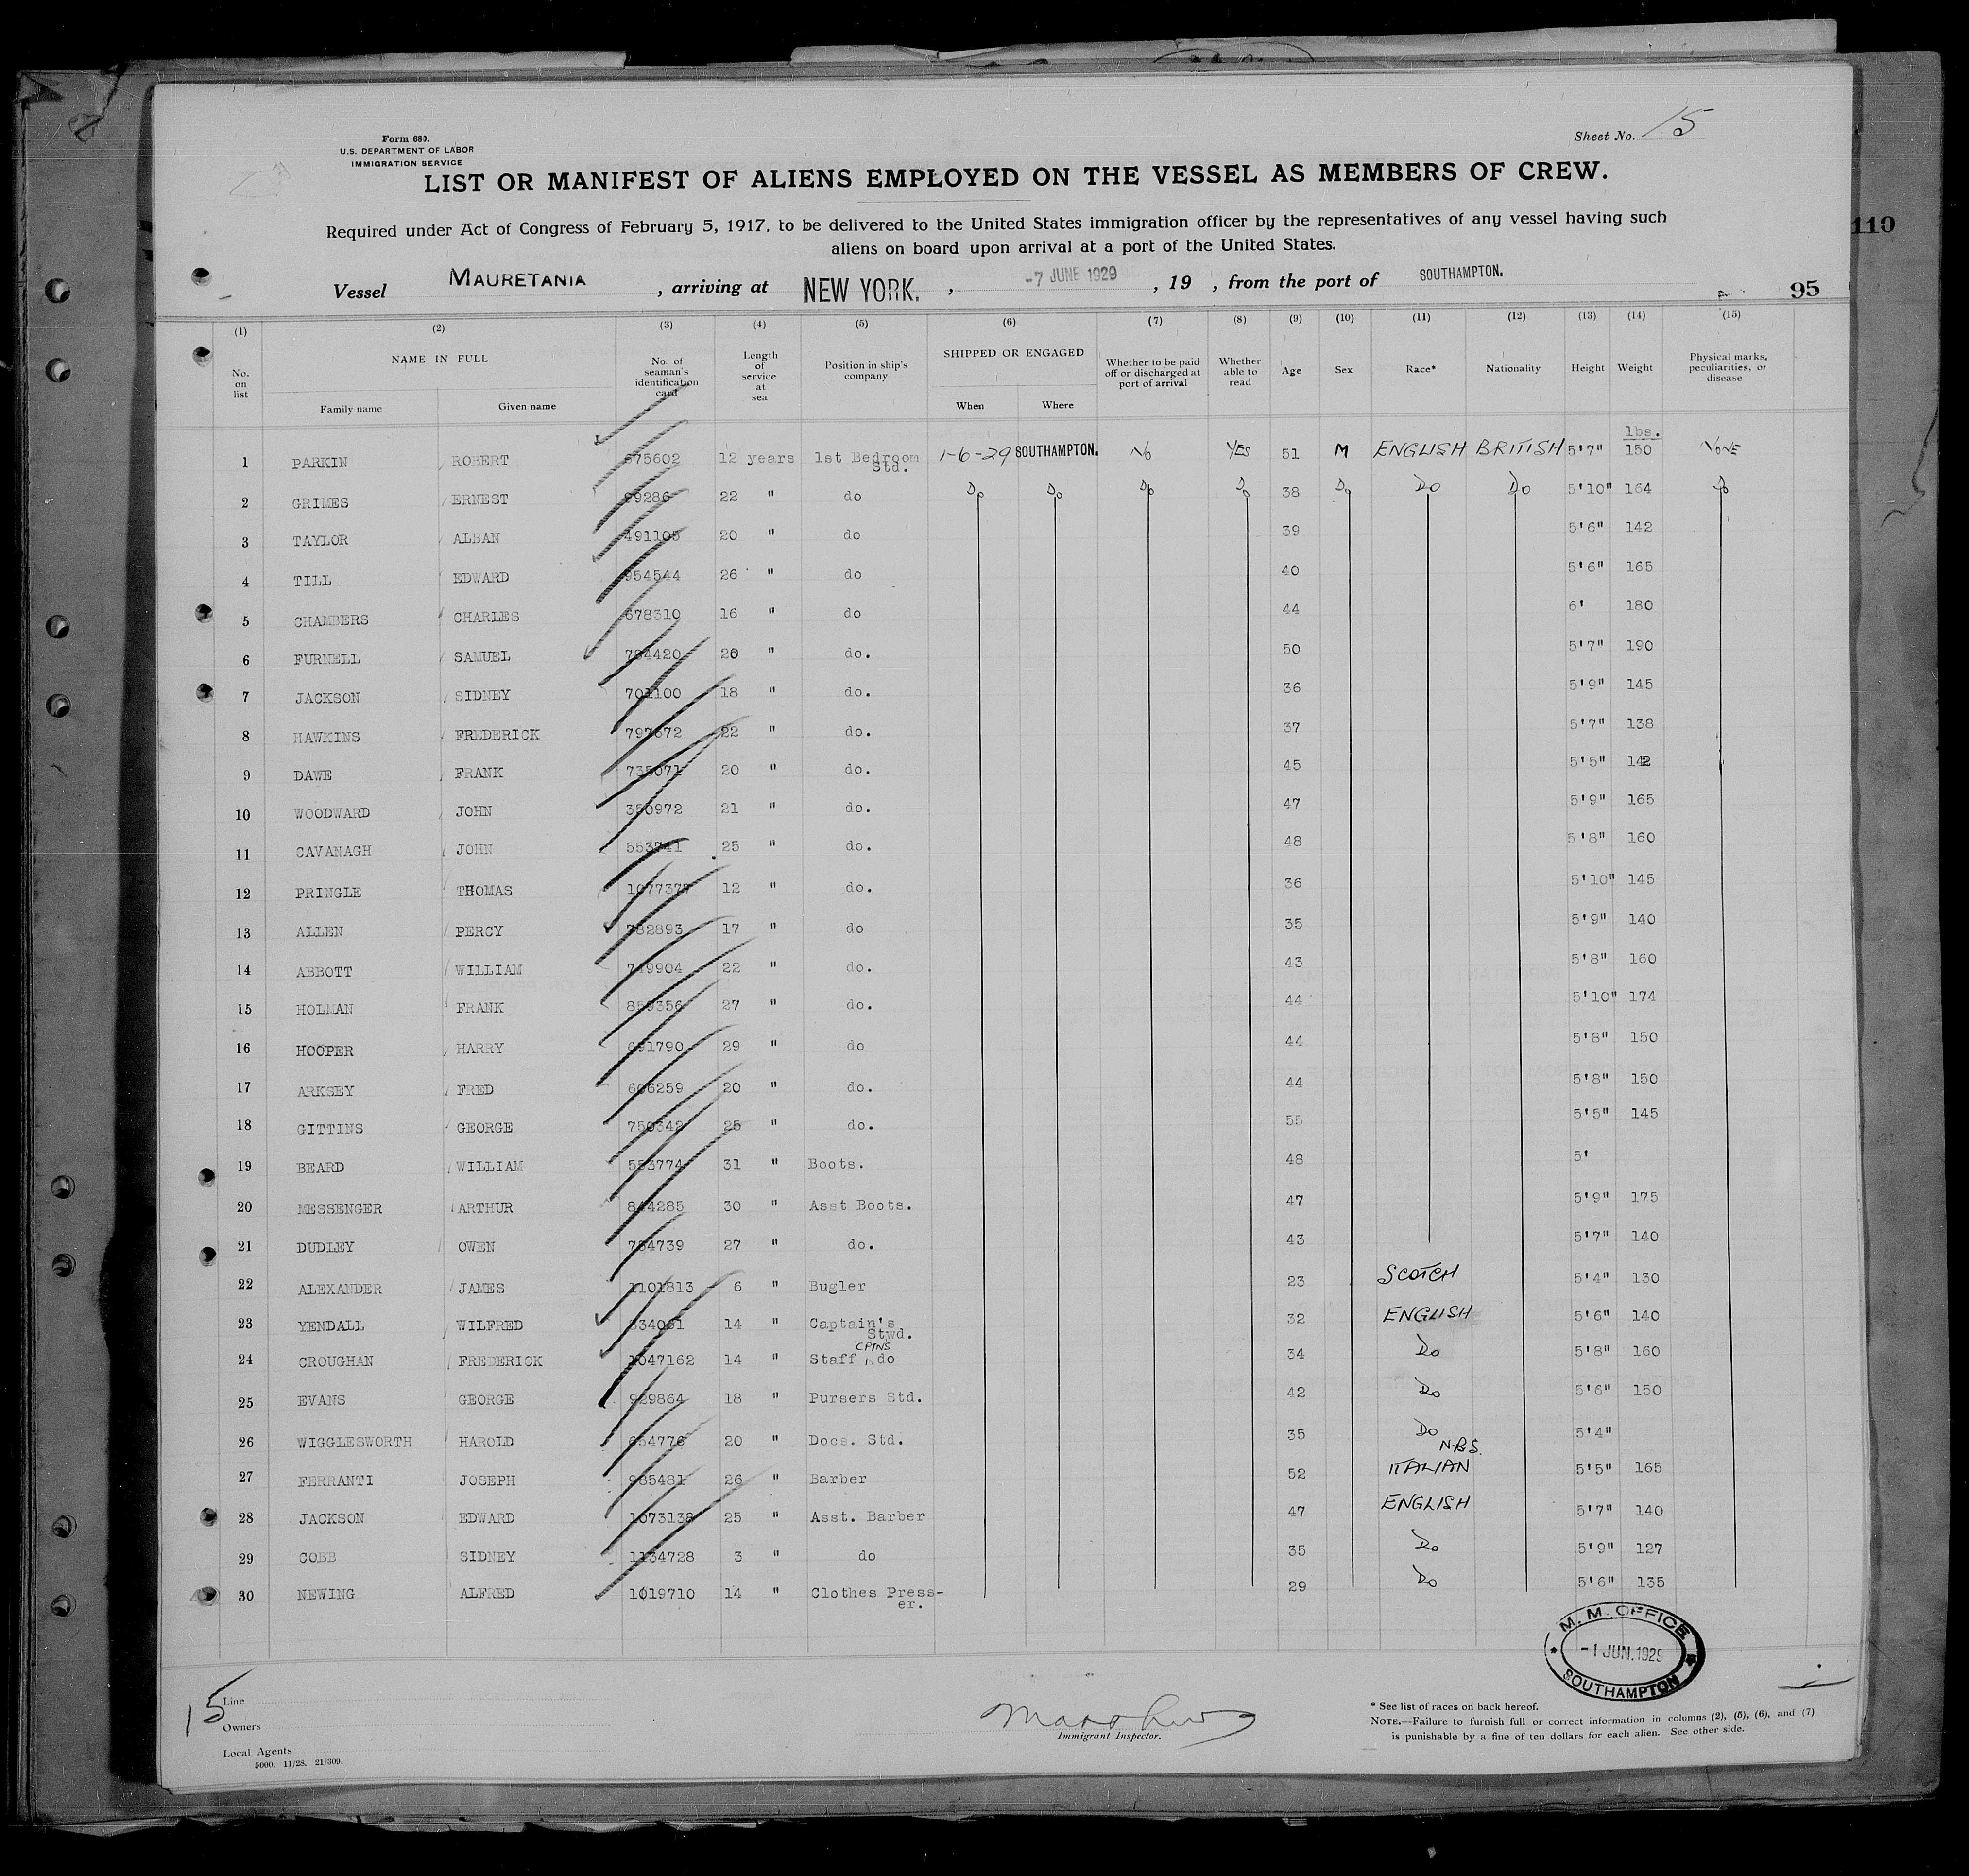 Form 680.
U.S. DEPARTMENT OF LABOR
IMMIGRATION SERVICE
Sheet No. 15
LIST OR MANIFEST OF ALIENS EMPLOYED ON THE VESSEL AS MEMBERS OF CREW.
Required under Act of Congress of February 5, 1917, to be delivered to the United States immigration officer by the representatives of any vessel having such
aliens on board upon arrival at a port of the United States.
110
Vessel MAURETANIA, arriving at NEW YORK., -7 JUNE 1929, 19 , from the port of SOUTHAMPTON.
95
(1) (2) (3) (4) (5) (6) (7) (8) (9) (10) (11) (12) (13) (14) (15)
No. on list
NAME IN FULL
Family name Given name
No. of seaman's identification card
Length of service at sea
Position in ship's company
SHIPPED OR ENGAGED
When Where
Whether to be paid off or discharged at port of arrival
Whether able to read
Age
Sex
Race*
Nationality
Height
Weight
Physical marks, peculiarities, or disease
lbs.
1 PARKIN ROBERT 675602 12 years 1st Bedroom Std. 1-6-29 SOUTHAMPTON. No YES 51 M ENGLISH BRITISH 5'7" 150 NONE
2 GRIMES ERNEST 99286 22 " do Do Do Do Do 38 Do Do Do 5'10" 164 Do
3 TAYLOR ALBAN 491105 20 " do 39 5'6" 142
4 TILL EDWARD 954544 26 " do 40 5'6" 165
5 CHAMBERS CHARLES 678310 16 " do 44 6' 180
6 FURNELL SAMUEL 784420 26 " do. 50 5'7" 190
7 JACKSON SIDNEY 701100 18 " do. 36 5'9" 145
8 HAWKINS FREDERICK 797672 22 " do. 37 5'7" 138
9 DAWE FRANK 735071 20 " do. 45 5'5" 142
10 WOODWARD JOHN 350972 21 " do. 47 5'9" 165
11 CAVANAGH JOHN 553741 25 " do. 48 5'8" 160
12 PRINGLE THOMAS 1077377 12 " do. 36 5'10" 145
13 ALLEN PERCY 782893 17 " do 35 5'9" 140
14 ABBOTT WILLIAM 749904 22 " do. 43 5'8" 160
15 HOLMAN FRANK 859356 27 " do. 44 5'10" 174
16 HOOPER HARRY 691790 29 " do 44 5'8" 150
17 ARKSEY FRED 606259 20 " do. 44 5'8" 150
18 GITTINS GEORGE 750342 25 " do. 55 5'5" 145
19 BEARD WILLIAM 553774 31 " Boots. 48 5'
20 MESSENGER ARTHUR 844285 30 " Asst Boots. 47 5'9" 175
21 DUDLEY OWEN 784739 27 " do. 43 5'7" 140
22 ALEXANDER JAMES 1101813 6 " Bugler 23 SCOTCH 5'4" 130
23 YENDALL WILFRED 834061 14 " Captain's Stwd. 32 ENGLISH 5'6" 140
24 CROUGHAN FREDERICK 1047162 14 " Staff CPTNS do 34 Do 5'8" 160
25 EVANS GEORGE 929864 18 " Pursers Std. 42 Do 5'6" 150
26 WIGGLESWORTH HAROLD 654776 20 " Docs. Std. 35 Do 5'4"
27 FERRANTI JOSEPH 985481 26 " Barber 52 N.B.S. ITALIAN 5'5" 165
28 JACKSON EDWARD 1073138 25 " Asst. Barber 47 ENGLISH 5'7" 140
29 COBB SIDNEY 1134728 3 " do 35 Do 5'9" 127
30 NEWING ALFRED 1019710 14 " Clothes Press-er. 29 Do 5'6" 135
M. M. OFFICE
-1 JUN. 1929
SOUTHAMPTON
15
Line
Owners
Local Agents
5000. 11/28. 21/309.
Immigrant Inspector.
* See list of races on back hereof.
NOTE.—Failure to furnish full or correct information in columns (2), (5), (6), and (7)
is punishable by a fine of ten dollars for each alien. See other side.